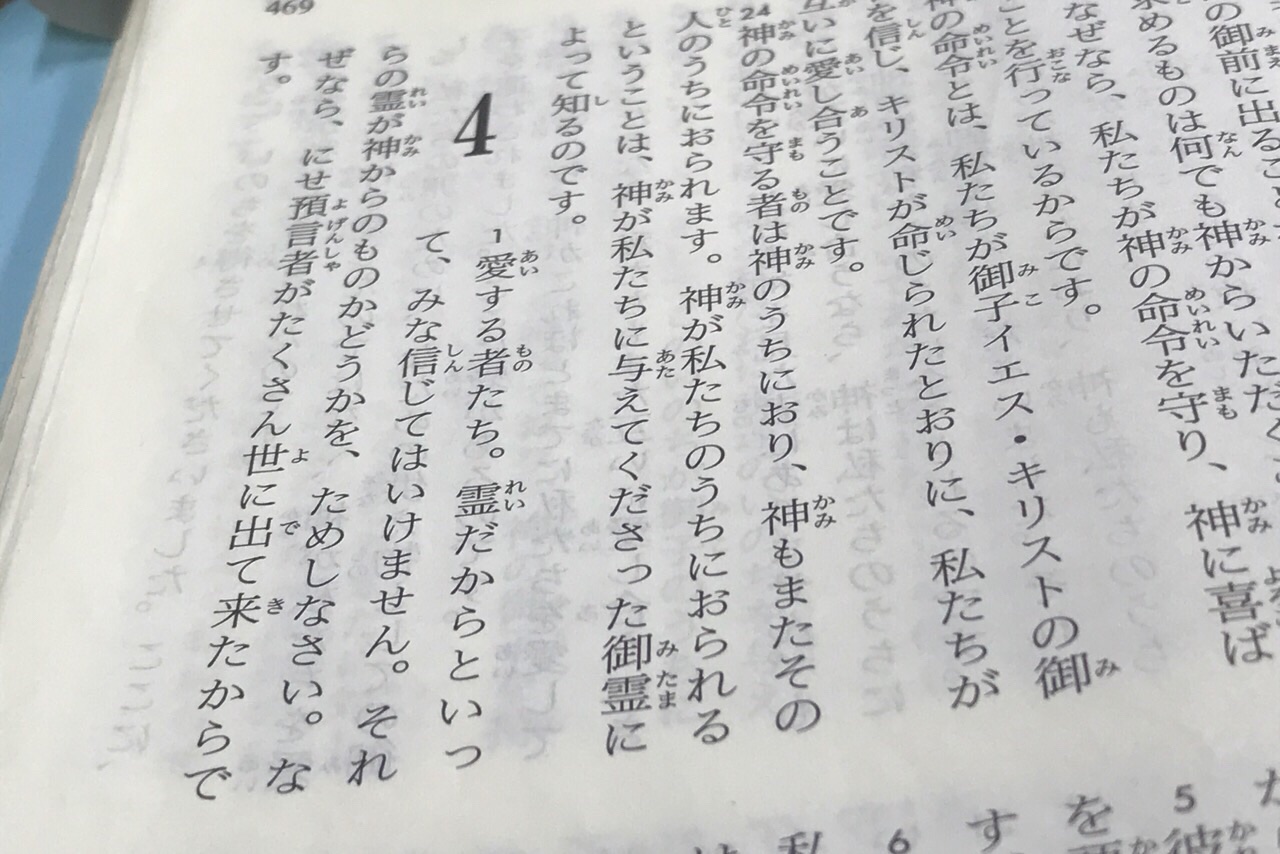 469
の御前に出ること
求めるものは何でも神からいただく
なぜなら、私たちが神の命令を守り、神に喜ば
ことを行っているからです。
神の命令とは、私たちが御子イエス・キリストの御
を信じ、キリストが命じられたとおりに、私たちが
互いに愛し合うことです。
24 神の命令を守る者は神のうちにおり、神もまたその
人のうちにおられます。神が私たちのうちにおられる
ということは、神が私たちに与えてくださった御霊に
よって知るのです。
4
1 愛する者たち。霊だからといっ
て、みな信じてはいけません。それ
らの霊が神からのものかどうかを、ためしなさい。な
ぜなら、にせ預言者がたくさん世に出て来たからで
す。
5 彼
を
す
6
私
は